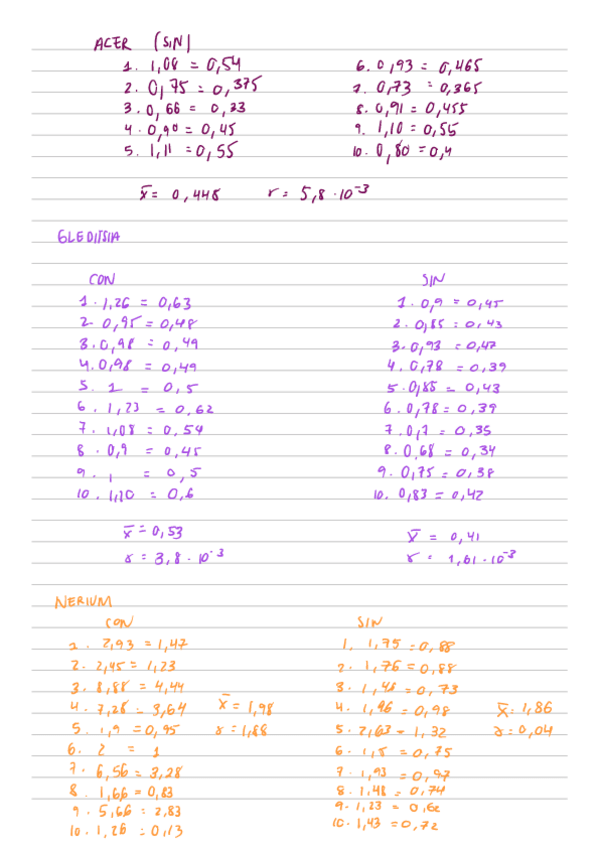 ACER (SIN)
1. 1,08 = 0,54
2. 0,75 = 0,375
3. 0,66 = 0,33
4. 0,90 = 0,45
5. 1,11 = 0,55
6. 0,93 = 0,465
7. 0,73 = 0,365
8. 0,91 = 0,455
9. 1,10 = 0,55
10. 0,80 = 0,4
x̄ = 0,448 r = 5,8 · 10⁻³
GLEDITSIA
CON
1. 1,26 = 0,63
2. 0,95 = 0,48
3. 0,98 = 0,49
4. 0,98 = 0,49
5. 1 = 0,5
6. 1,23 = 0,62
7. 1,08 = 0,54
8. 0,9 = 0,45
9. 1 = 0,5
10. 1,20 = 0,6
x̄ = 0,53
r = 3,8 · 10⁻³
SIN
1. 0,9 = 0,45
2. 0,85 = 0,43
3. 0,93 = 0,47
4. 0,78 = 0,39
5. 0,85 = 0,43
6. 0,78 = 0,39
7. 0,7 = 0,35
8. 0,68 = 0,34
9. 0,75 = 0,38
10. 0,83 = 0,42
x̄ = 0,41
r = 1,61 · 10⁻³
NERIUM
CON
1. 2,93 = 1,47
2. 2,45 = 1,23
3. 8,88 = 4,44
4. 7,28 = 3,64
5. 1,9 = 0,95
6. 2 = 1
7. 6,56 = 3,28
8. 1,66 = 0,83
9. 5,66 = 2,83
10. 1,26 = 0,13
x̄ = 1,98
r = 1,88
SIN
1. 1,75 = 0,88
2. 1,76 = 0,88
3. 1,48 = 0,73
4. 1,96 = 0,98
5. 2,63 = 1,32
6. 1,5 = 0,75
7. 1,93 = 0,97
8. 1,48 = 0,74
9. 1,23 = 0,62
10. 1,43 = 0,72
x̄ = 1,86
r = 0,04